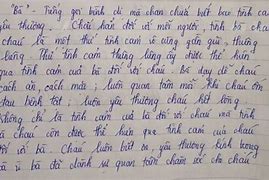 "Bà" - Tiếng gọi bình dị mà chan chứa biết bao tình cảm
yêu thương. Chắc hẳn đối với mỗi người, tình bà cháu
cháu là một thứ tình cảm vô cùng gần gũi, thường
liêng. Thứ tình cảm thiêng liêng ấy được thể hiện
qua tình cảm của bà đối với cháu. Bà dạy dỗ cháu
cách ăn, cách mặc; luôn quan tâm mỗi khi cháu ốm
đau bệnh tật; luôn yêu thương cháu hết lòng.
Không chỉ là tình cảm của bà đối với cháu mà tình
cháu còn được thể hiện qua tình cảm của cháu
đối với bà. Cháu luôn biết ơn, yêu thương kính trọng
bà vì bà đã dành sự quan tâm chăm sóc cho cháu